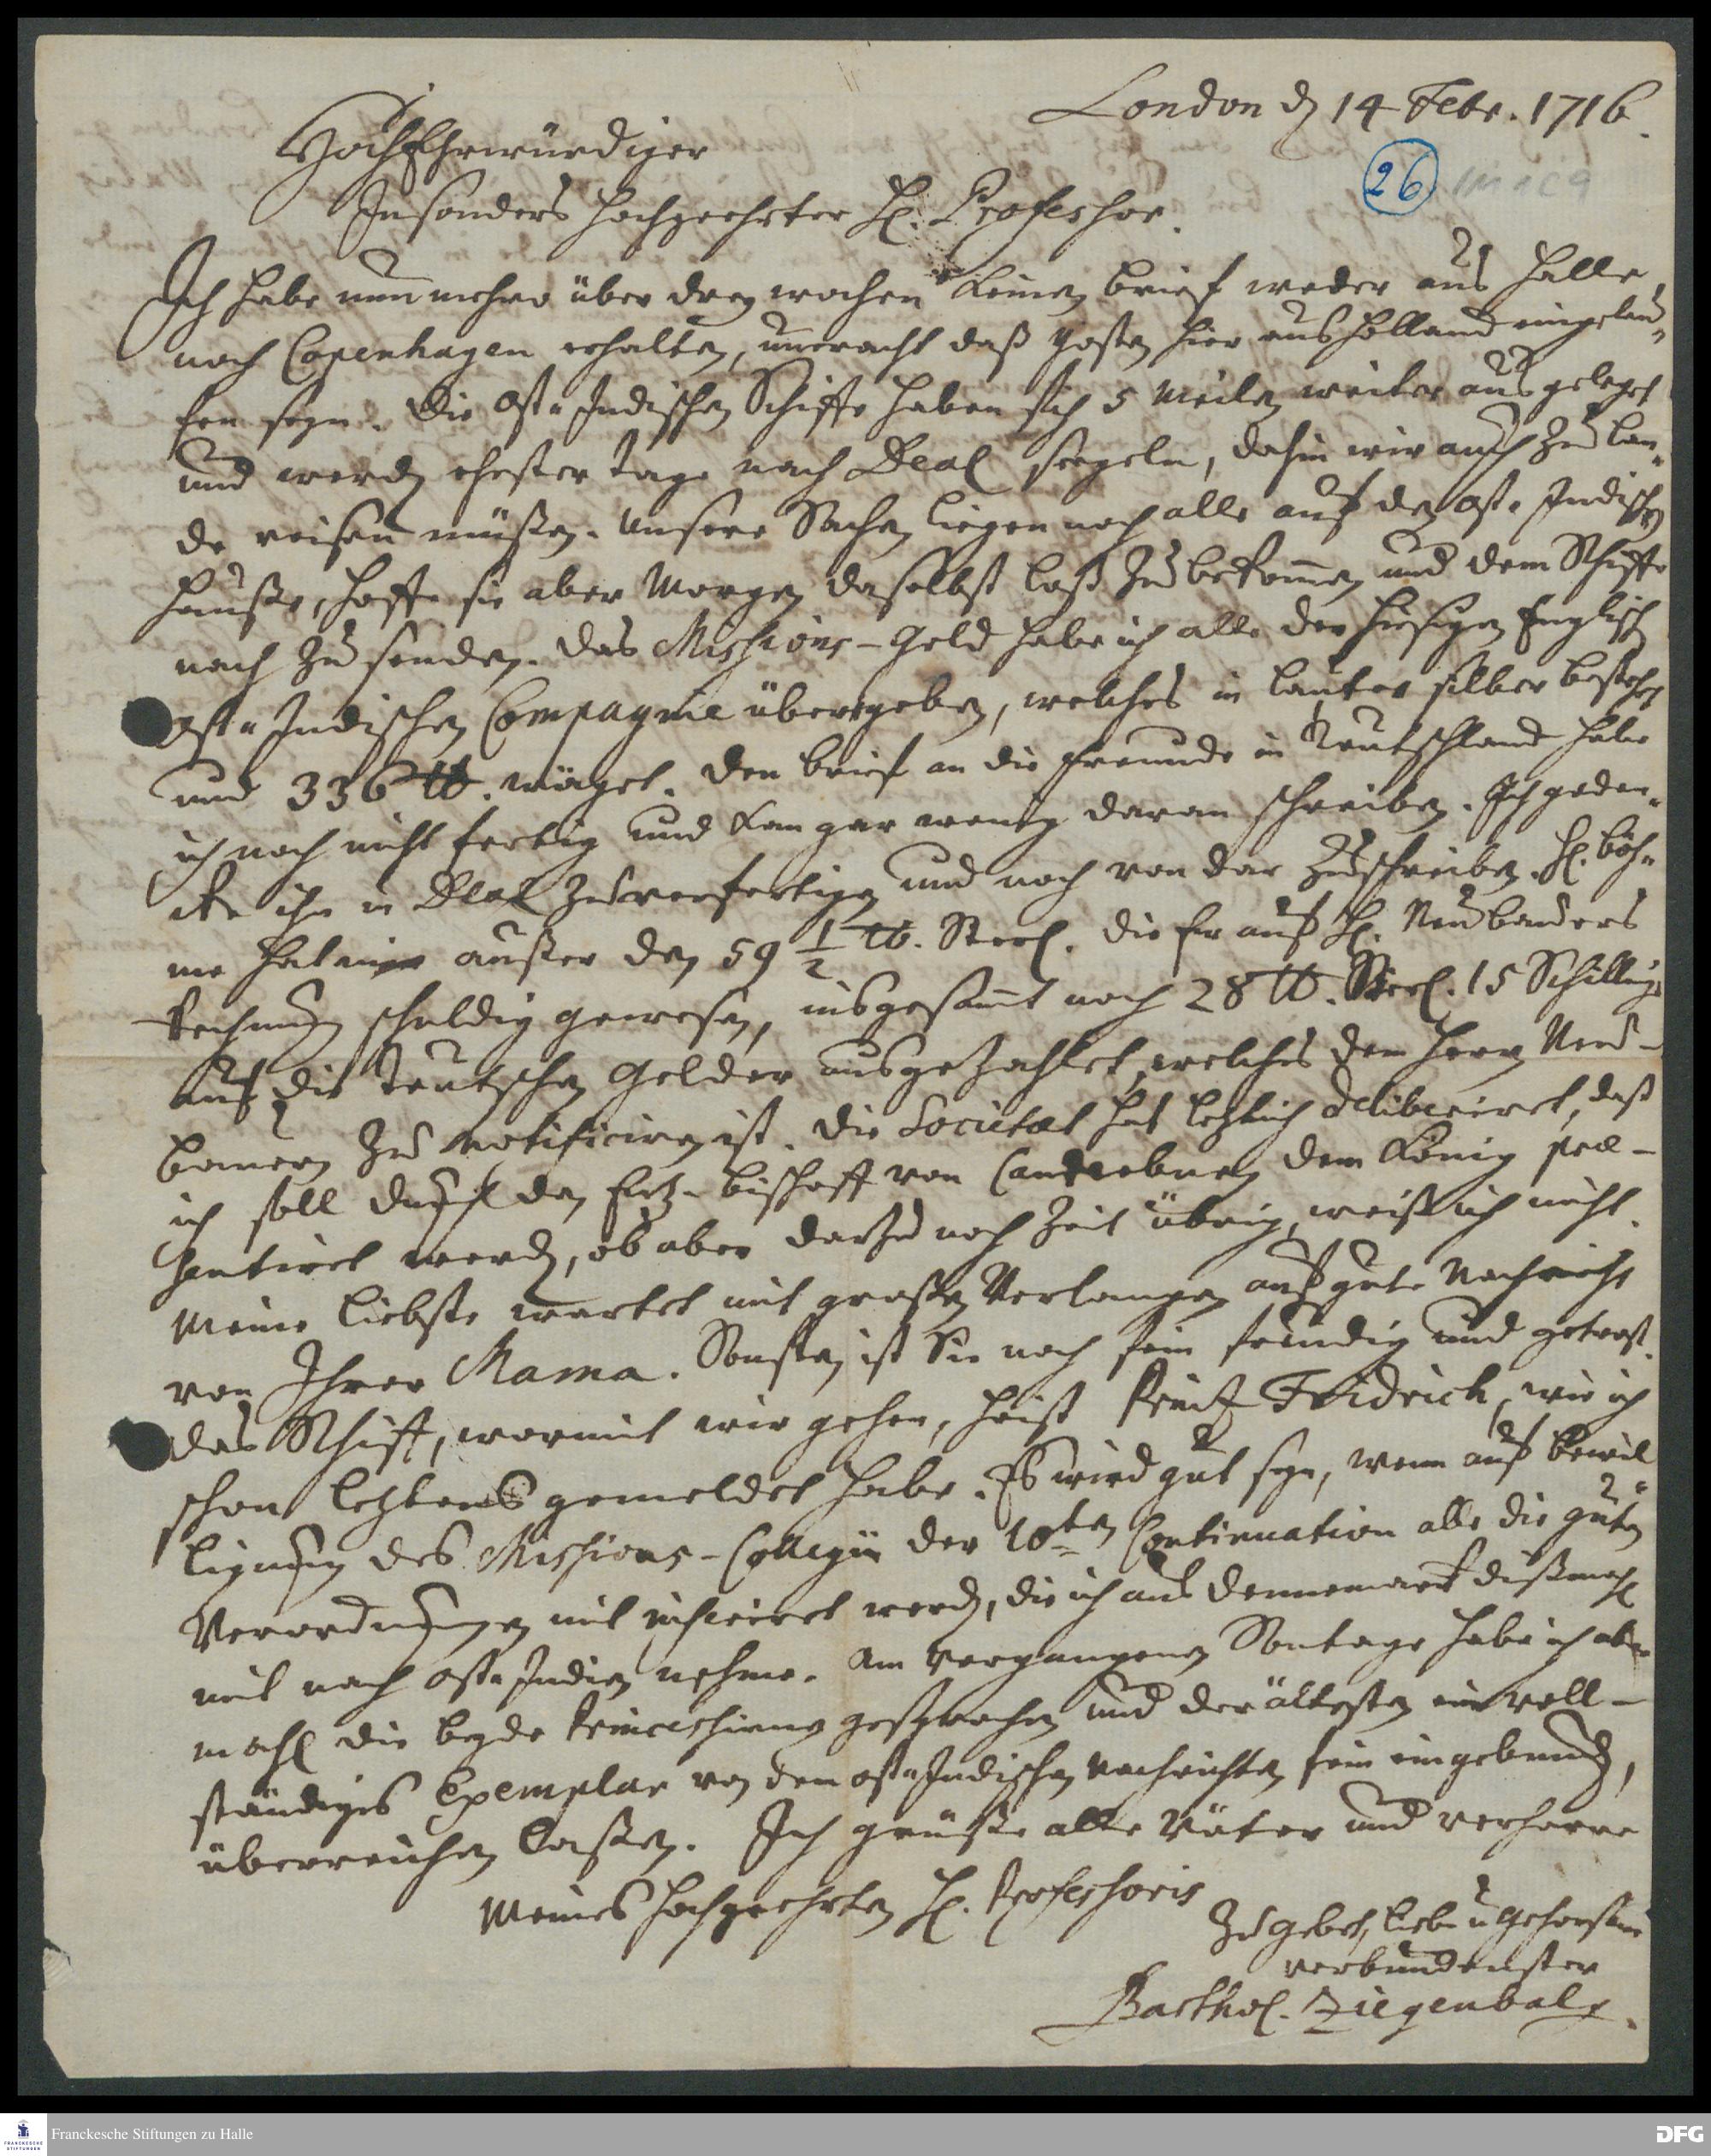 London d 14 Febr. 1716.
HochEhrwürdiger
26
Insonders Hochgeehrter H. Professor.
Ich habe nun mehro über drey wochen keinen brief weder aus Halle,
noch Copenhagen erhalten, uneracht daß Posten hier aus Holland eingelau-
fen seyn. Die Ost-Indischen Schiffe haben sich 5 Meilen weiter aus geleget
und werden ehester tage nach Deal seegeln, dahin wir auch zu Lan-
de reisen müßen. Unsere Sachen liegen noch alle auf den Ost-Indischen
Hauße, hoffe sie aber Morgen daselbst loß zu bekommen und dem Schiffe
nach zu senden. Das Missions-Geld habe ich alle der hiesigen Englisch
Ost-Indischen Compagnie übergeben, welches in lauter silber bestehet
und 336 tt. wäget. Den brief an die freunde in Teutschland habe
ich noch nicht fertig und kan gar wenig daran schreiben. Ich geden-
cke ihn in Deal zu verfertigen und noch von dar zu schreiben. H. Böh-
me hat mir außer den 59 1/2 tt. Sterl. die Er auf H. Neubauers
Rechnung schuldig gewesen, insgesamt noch 28 tt. Sterl. 15 Schillings
auf die Teutschen Gelder ausgezahlet, welches dem Herrn Neu-
bauern zu notificiren ist. Die Societat hat letzlich deliberiret, daß
ich soll durch den Ertz-bischoff von Canterbury dem König prae-
sentiret werden, ob aber darzu noch Zeit übrig, weiß ich nicht.
Meine Liebste wartet mit großen Verlangen auf gute Nachricht
von Ihrer Mama. Sonsten ist Sie noch fein freudig und getrost.
Das Schiff, wormit wir gehen, heist Printz Fridrich, wie ich
schon letztens gemeldet habe. Es wird gut seyn, wenn auf Bewil-
ligung des Missions-Collegii der 10ten Continuation alle die guten
Verordnungen mit inseriret werden, die ich aus Dennemark dißmahl
mit nach Ost-Indien nehme. Am vergangenen Sontage habe ich aber-
mahl die beyde Princessinnen gesprochen und der ältesten ein voll-
ständiges Exemplar von den Ost-Indischen Nachrichten fein eingebunden,
überreichen laßen. Ich grüße alle Väter und verharre
Meines Hochgeehrten H. Professoris
Zu Gebet, Liebe u Gehorsam
verbundenster
Barthol. Ziegenbalg.
Franckesche Stiftungen zu Halle
DFG